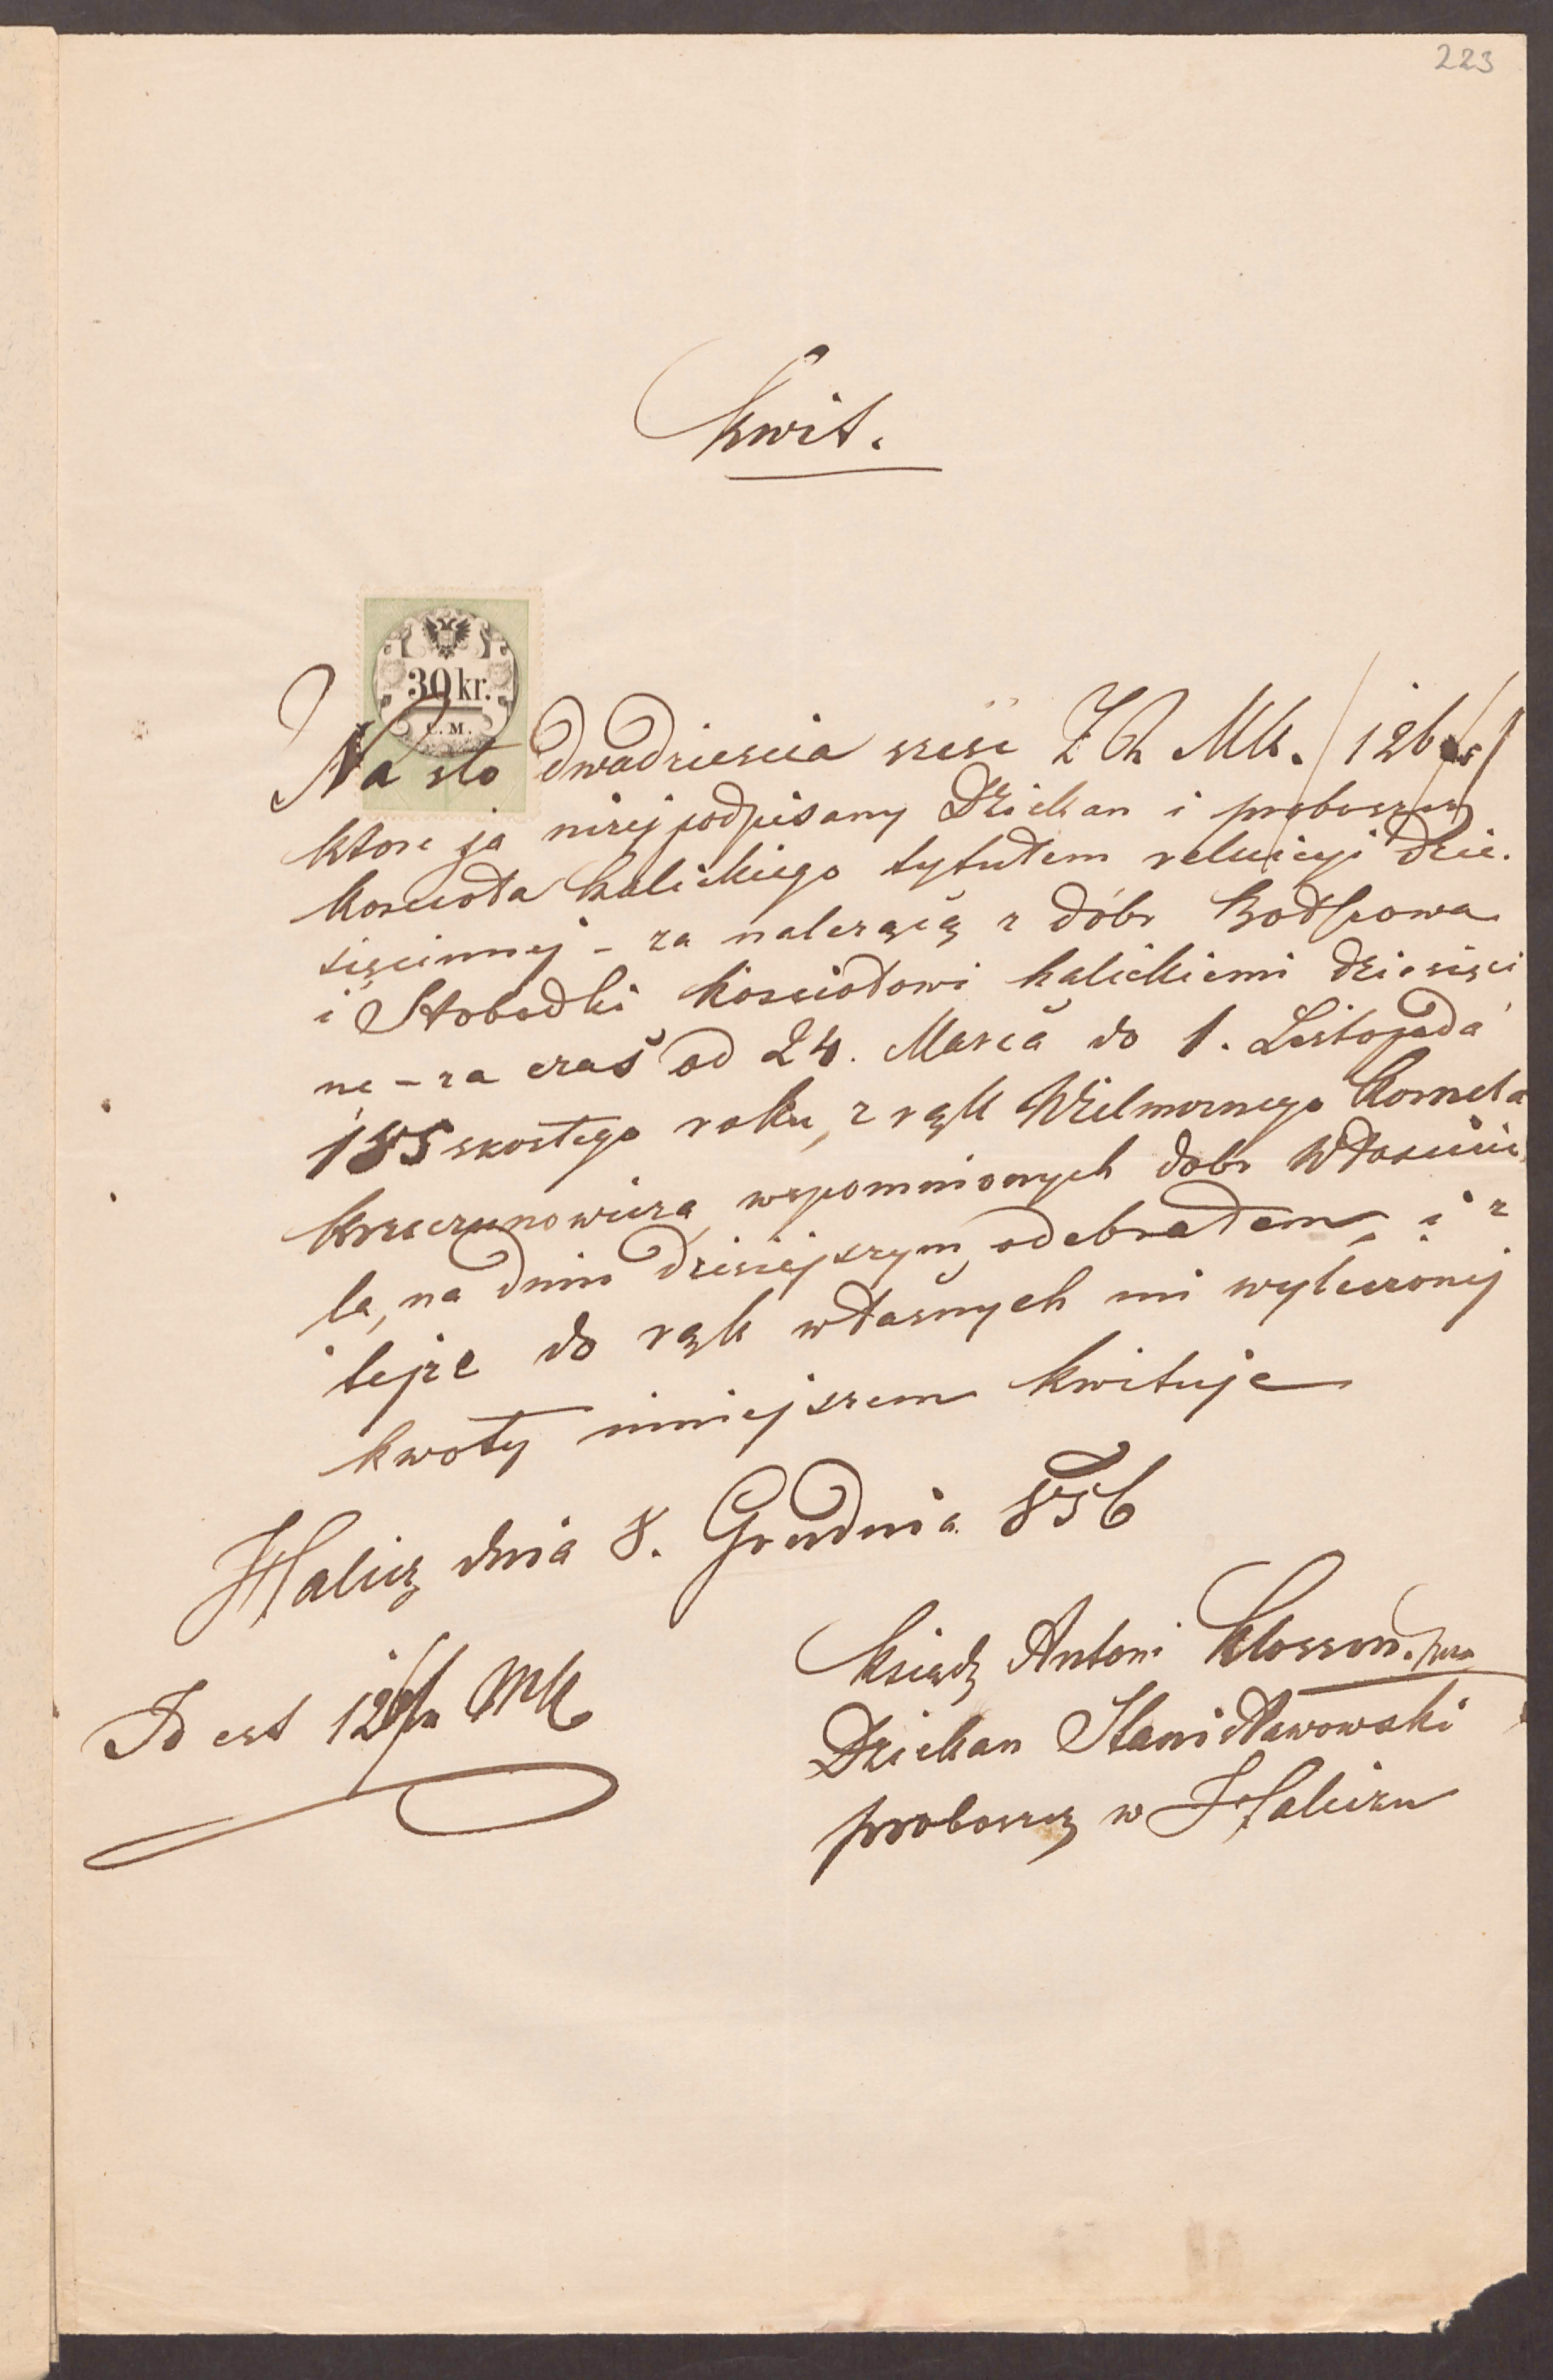 223
Kwit.
30 kr.
C. M.
Na sto dwadziescia szesc ZR Mk. /126
ktore ja niżej podpisany Dziekan i proboszcz
Koscioła halickiego tytułem relucyi dzie-
sięcinnej - za należącą z dóbr Bodſzowa
i Słobodki Kosciołowi halickiemi dziesięci
nę - za czas od 24. Marca do 1. Listopada
185 szostego roku, z rąk Wielmoznego Kornela
Krzeczunowicza, wspomnionych dobr Własicie
la, na dniu dzisiejszym, odebrałem, i z
tejże do rąk własnych mi wyliczonej
kwoty niniejszem kwituje
Halicz dnia 8. Grudnia 856
Ksiądz Antoni
Id est 126 Mk
Dziekan Stanisławowski
proboszcz w Haliczu